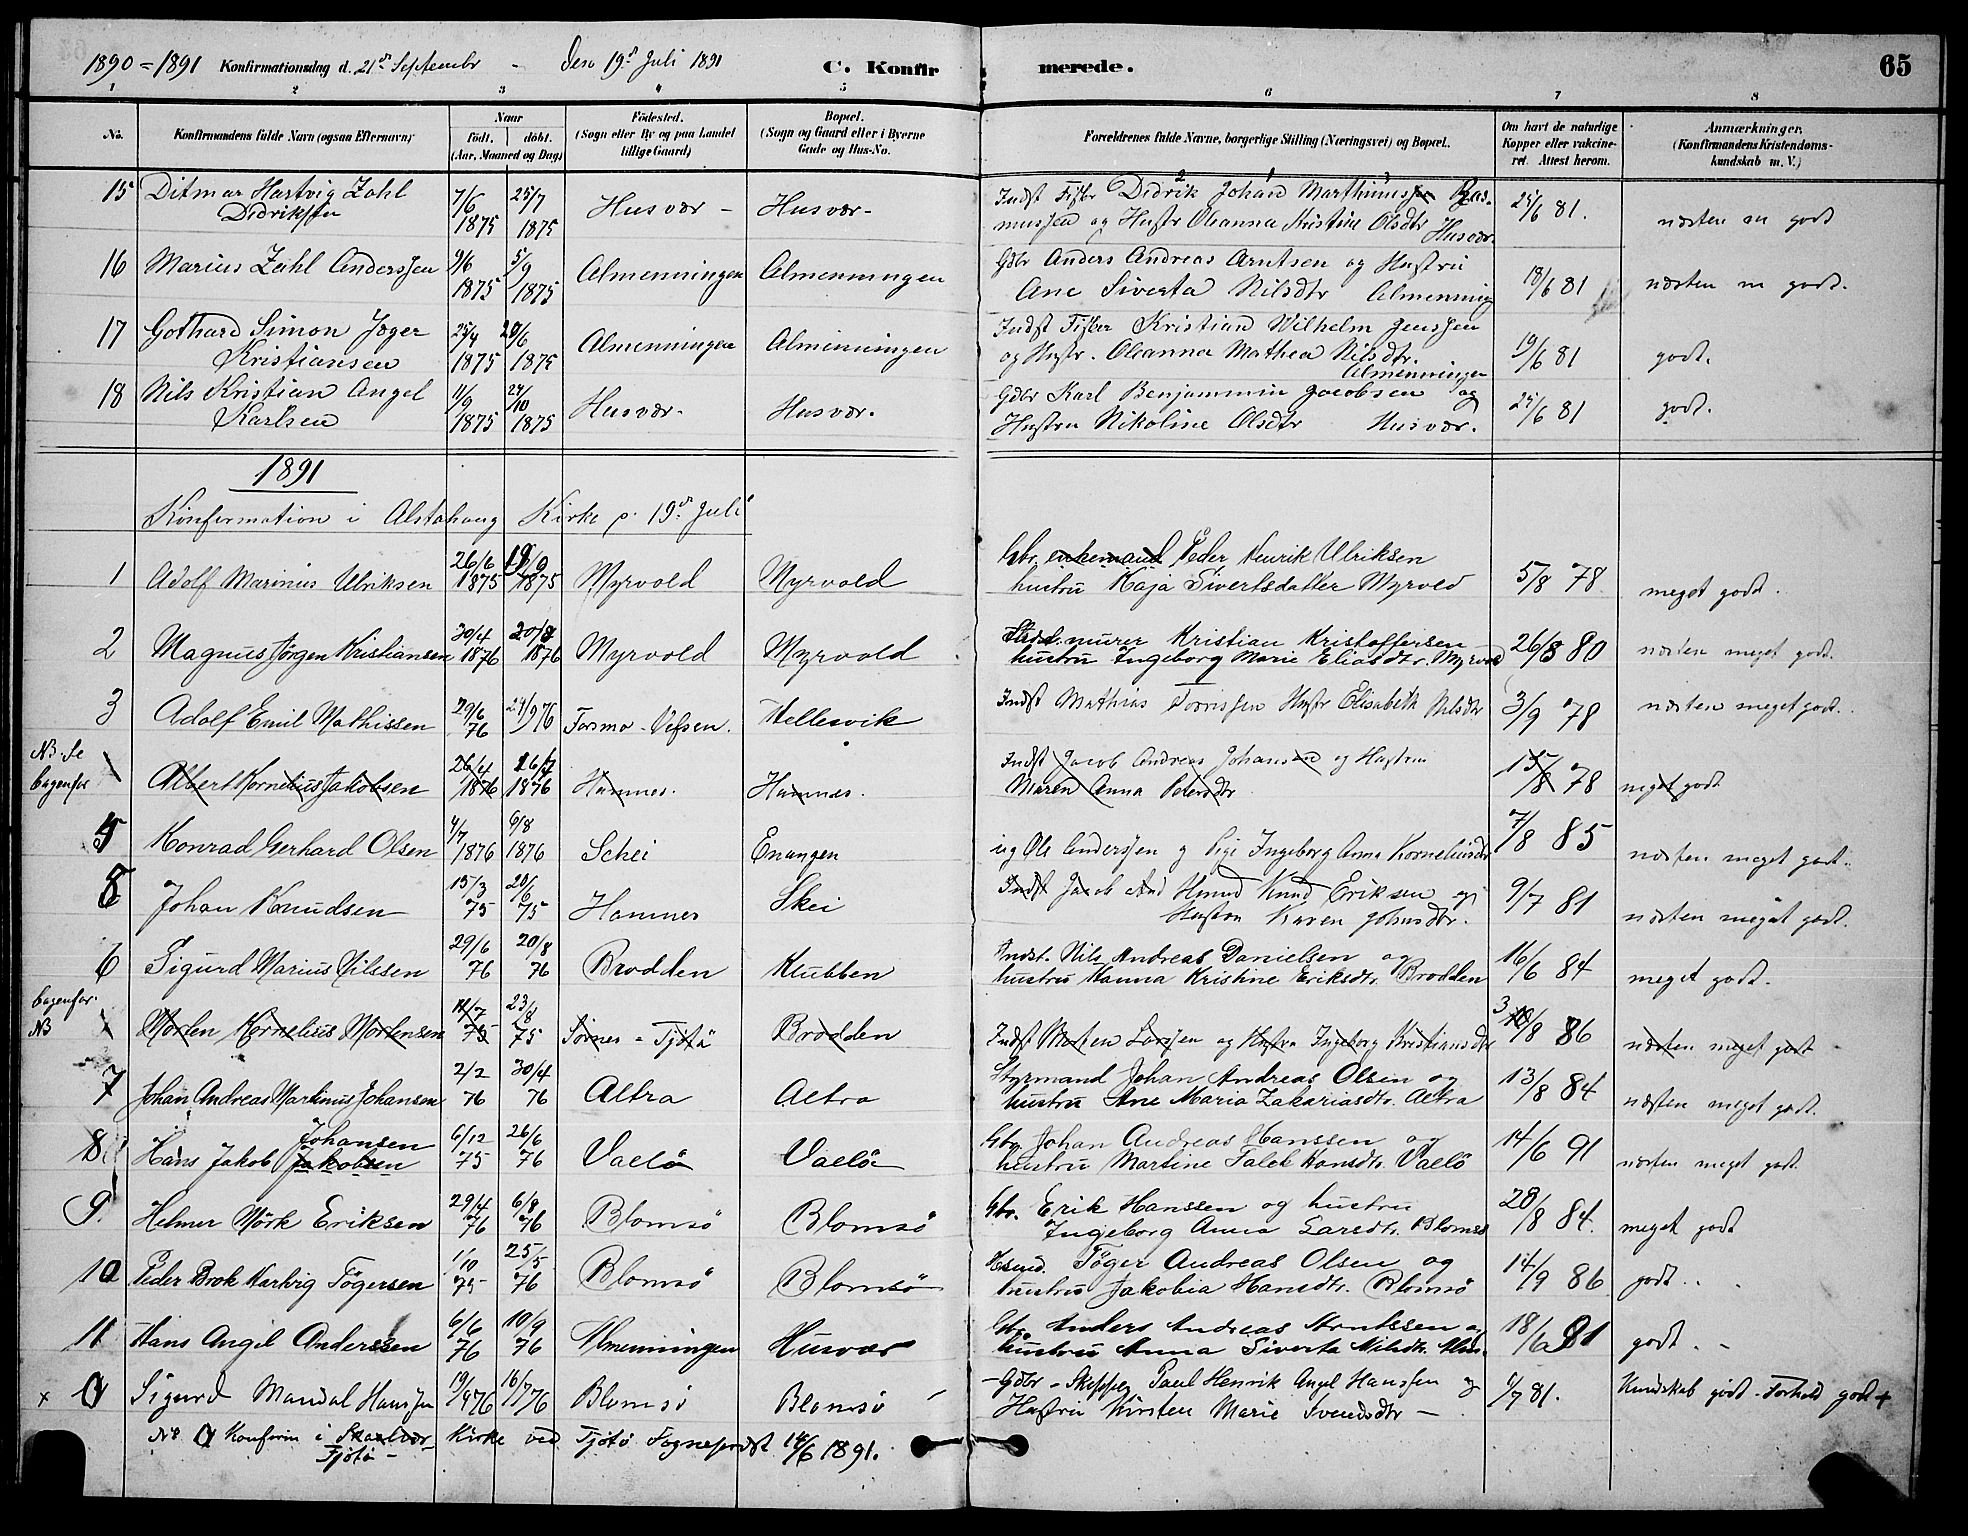 1890-1891 Konfirmationsdag d. 21de September - den 19de Juli 1891 C. Konfirmerede. 65
1 2 3 4 5 6 7 8
No. Konfirmandens fulde Navn (ogsaa Efternavn) Naar født. døbt. (Aar, Maaned og Dag) Fødested. (Sogn eller By og paa Landet tillige Gaard) Bopæl. (Sogn og Gaard eller i Byerne Gade og Hus-No. Forældrenes fulde Navne, borgerlige Stilling (Næringsvei) og Bopæl. Om havt de naturlige Kopper eller vakcineret. Attest herom. Anmærkninger. (Konfirmandens Kristendomskundskab m. V.)
15 Ditmar Hartvig Zahl 7/6 25/7 Husvær - Husvær - Indst Fisker Didrik Johan Marthinussen Ras- 25/6 81. næsten m godt
Didriksen 1875 1875 mussen og Hustr Oleanna Kristine Olsdtr Husvær.
16 Marius Zahl Anderssen 9/6 5/9 Almenningen Almenningen Gdbr Anders Andreas Arntsen og Hustru 18/6 81 næsten m godt.
1875 1875 Ane Siverta Nilsdtr Almenning
17 Gothard Simon Jæger 25/4 20/6 Almenningen Almenningen Indst Fisker Kristian Wilhelm Jenssen 19/6 81 godt.
Kristiansen 1875 1875 og Hustr. Oleanna Mathea Nilsdtr. Almenningen
18 Nils Kristian Angel 11/9 24/10 Husvær. Husvær. Gdbr Karl Benjammin Jacobsen og 25/6 81 godt.
Karlsen 1875 1875 Hustru Nikoline Olsdtr Husvær.
1891
Konfirmation i Alstahaug Kirke d. 19de Juli
1 Adolf Marinius Ulriksen 26/6 1875 19/9 1875 Myrvold Myrvold Gbr. enkemand Peder Henrik Ulriksen 5/8 78 meget godt.
hustru Kaja Sivertsdatter Myrvold
2 Magnus Jørgen Kristiansen 30/4 1876 20/8 1876 Myrvold Myrvold murer Kristian Kristoffersen 26/8 80 næsten meget godt.
hustru Ingeborg Marie Eliasdtr. Myrvold
3 Adolf Emil Mathissen 29/6 76 24/9 76 Formo - Vefsen. Hellesvik Indst Mathias Torrissen Hustr Elisabeth Nilsdtr 3/9 78 næsten meget godt.
NB. Se
bagenfor Albert Kornelius Jakobsen 26/4 1876 26/7 1876 Hamnes. Hamnes. Indst Jacob Andreas Johansen og Hustru 15/8 78 meget godt
Maren Anna Petersdtr
4 Konrad Gerhard Olsen 4/7 1876 6/8 1876 Schei Enangen ug Ole Anderssen g Pige Ingeborg Anna Korneliusdtr 7/8 85 næsten meget godt.
5 Johan Knudsen 15/3 75 20/6 75 Hamnes Skei Indst Jacob And Hmnd Knud Eriksen og 9/7 81 næsten meget godt.
Hustru Karen Johnsdtr.
6 Sigurd Marius Nilssen 29/6 76 20/8 76 Brodden Klubben Indst. Nils Andreas Danielsen og 16/6 84 meget godt.
hustru Hanna Kristine Eriksdtr. Brodden
bagenfor.
NB Morten Kornelius Mortensen 11/7 75 23/8 75 Sørnes - Tjøtø Brodden Indst Morten Larssen og Hustru Ingeborg Kristiansdtr 3/8 86 næsten meget godt
7 Johan Andreas Martinus Johansen 2/2 76 30/4 76 Altra Altra Styrmand Johan Andreas Olsen og 13/8 84 næsten meget godt.
hustru Ane Maria Zakariasdtr. Altra
8 Hans Jakob Jakobsen Johansen 6/12 75 26/6 76 Vallø Vallø Gbr. Johan Andreas Hanssen og 14/6 91 næsten meget godt.
hustru Martine Falck Hansdtr. Vallø
9. Helmer Mørk Eriksen 29/4 76 6/8 76 Blomsø Blomsø Gbr. Erik Hanssen og hustru 28/8 84. meget godt
Ingeborg Anna Larsdtr. Blomsø
10 Peder Brok Hartvig Tøgersen 1/10 75 25/5 76 Blomsø Blomsø Hsmd. Tøger Andreas Olsen og 14/9 86 godt.
hustru Jakobia Hansdtr. Blomsø
11 Hans Angel Anderssen 6/6 76 10/9 76 Almenningen Husvær Gbr. Anders Andreas Arntssen og 18/6 81 godt. -
hustru Anna Siverta Nilsdtr. Alm.
x 0 Sigurd Mandal Hanssen 19/4 76 16/7 76 Blomsø Blomsø - Gdbr - Skipper Paul Henrik Angel Hanssen og 1/7 81. Kundskab godt - Forhold godt +
Hustru Kirsten Marie Svendsdtr -
NB 0 Konfirm i Skaalvær Kirke ved Tjøtø Sogneprest 14/6 1891.
Tjøtø -